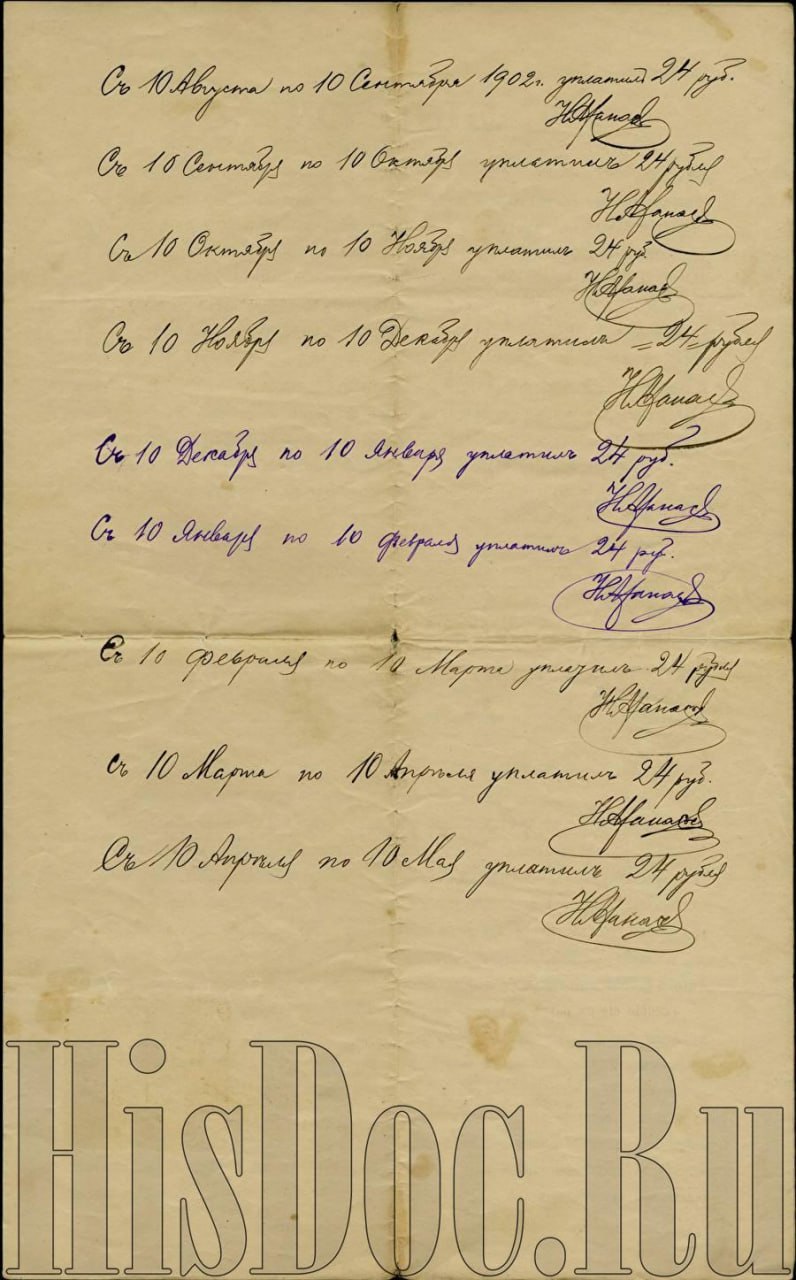 Съ 10 Августа по 10 Сентября 1902 г. уплатилъ 24 руб.
Н.Афанасьев
Съ 10 Сентября по 10 Октября уплатилъ 24 рубля
Н.Афанасьев
Съ 10 Октября по 10 Ноября уплатилъ 24 руб.
Н.Афанасьев
Съ 10 Ноября по 10 Декабря уплатилъ =24= рубля
Н.Афанасьев
Съ 10 Декабря по 10 Января уплатилъ 24 руб.
Н.Афанасьев
Съ 10 Января по 10 Февраля уплатилъ 24 руб.
Н.Афанасьев
Съ 10 Февраля по 10 Марта уплатилъ 24 рубля
Н.Афанасьев
Съ 10 Марта по 10 Апрѣля уплатилъ 24 руб.
Н.Афанасьев
Съ 10 Апрѣля по 10 Мая уплатилъ 24 рубля
Н.Афанасьев
HisDoc.Ru